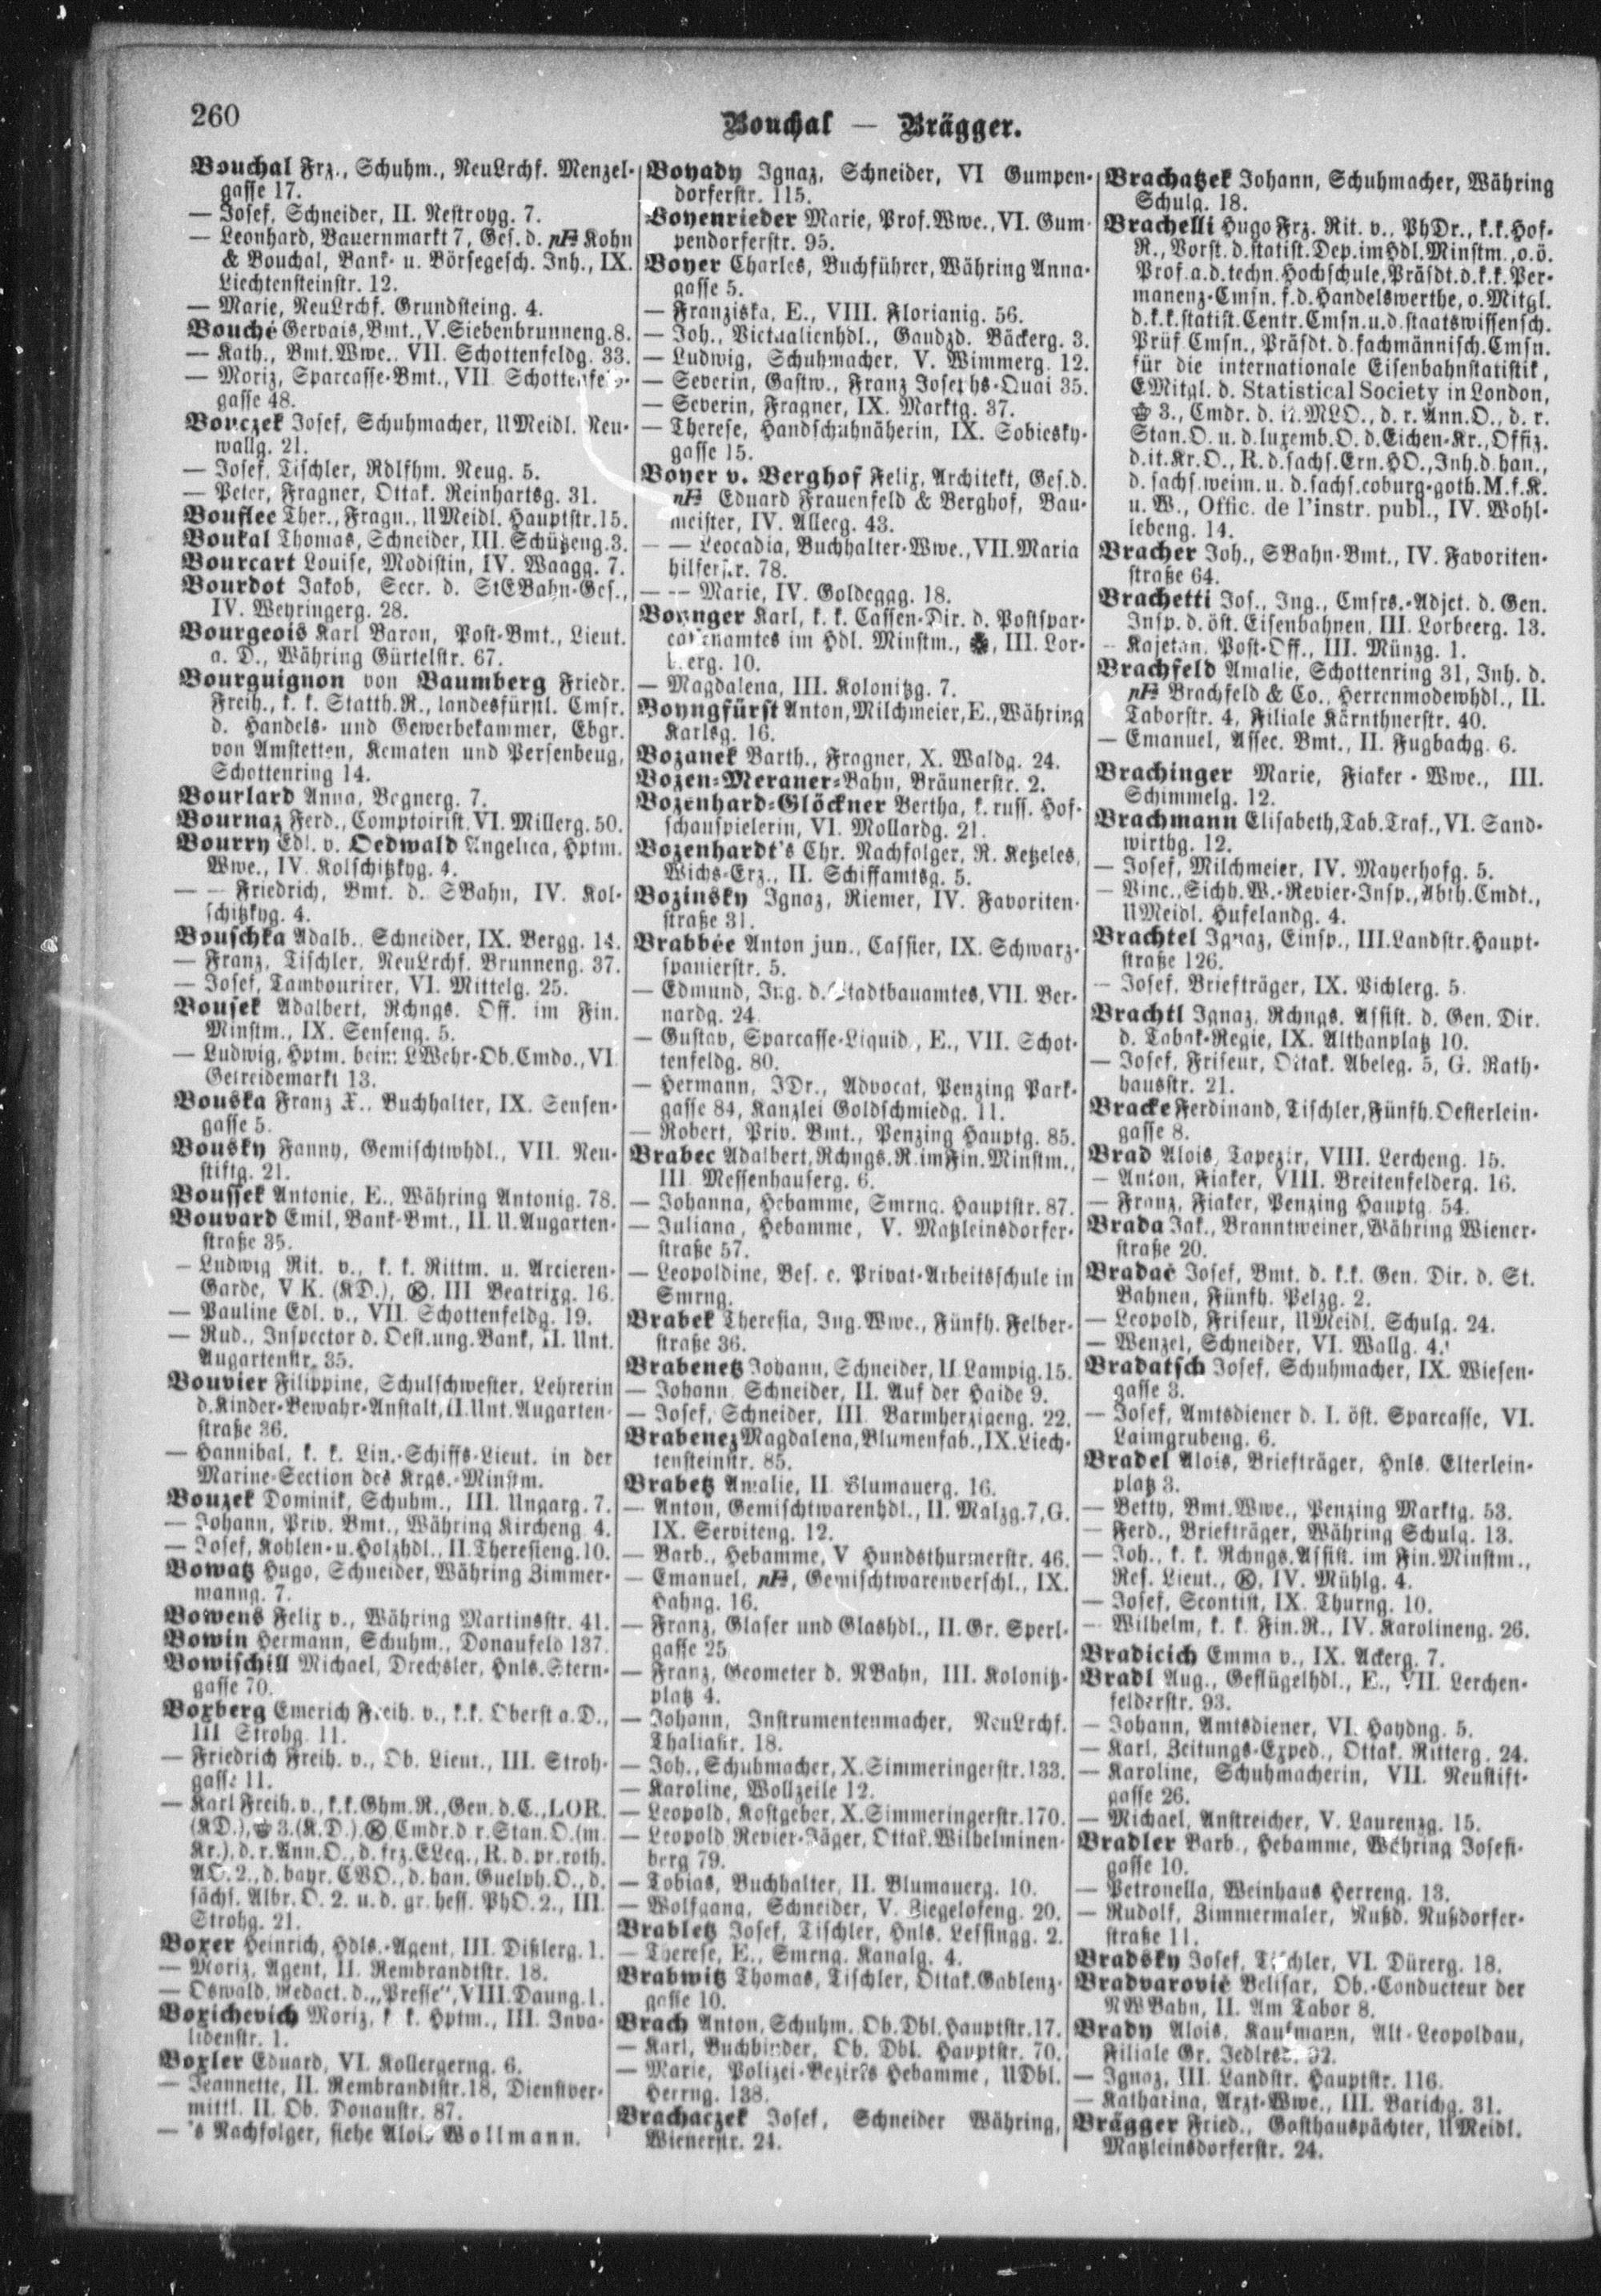 260
Bouchal — Brägger.
Bouchal Frz., Schuhm., NeuLrchf. Menzel-
gasse 17.
— Josef, Schneider, II. Nestroyg. 7.
— Leonhard, Bauernmarkt 7, Ges. d. Kohn
& Bouchal, Bank- u. Börsegesch. Inh., IX.
Liechtensteinstr. 12.
— Marie, NeuLrchf. Grundsteing. 4.
Bouché Gervais, Bmt., V. Siebenbrunneng. 8.
— Kath., Bmt.Wwe., VII. Schottenfeldg. 33.
— Moriz, Sparcasse-Bmt., VII Schottenfeld-
gasse 48.
Bouczek Josef, Schuhmacher, UMeidl. Neu-
wallg. 21.
— Josef, Tischler, Rdlfhm. Neug. 5.
— Peter, Fragner, Ottak. Reinhartsg. 31.
Bouflec Ther., Fragn., UMeidl. Hauptstr. 15.
Boukal Thomas, Schneider, III. Schützeng. 3.
Bourcart Louise, Modistin, IV. Waagg. 7.
Bourdot Jakob, Secr. d. StEBahn-Ges.,
IV. Weyringerg. 28.
Bourgeois Karl Baron, Post-Bmt., Lieut.
a. D., Währing Gürtelstr. 67.
Bourguignon von Baumberg Friedr.
Freih., k. k. Statth.R., landesfürstl. Cmsr.
d. Handels- und Gewerbekammer, Ebgr.
von Amstetten, Kematen und Persenbeug,
Schottenring 14.
Bourlard Anna, Bognerg. 7.
Bournaz Ferd., Comptoirist, VI. Millerg. 50.
Bourry Edl. v. Oedwald Angelica, Hptm.
Wwe., IV. Kolschitzkyg. 4.
— — Friedrich, Bmt. d. SBahn, IV. Kol-
schitzkyg. 4.
Bouschka Adalb., Schneider, IX. Bergg. 14.
— Franz, Tischler, NeuLrchf. Brunneng. 37.
— Josef, Tambourirer, VI. Mittelg. 25.
Bousek Adalbert, Rchngs. Off. im Fin.
Minstm., IX. Senseng. 5.
— Ludwig, Hptm. beim LWehr-Ob.Cmdo., VI.
Getreidemarkt 13.
Bouska Franz X., Buchhalter, IX. Sensen-
gasse 5.
Bousky Fanny, Gemischtwhdl., VII. Neu-
stiftg. 21.
Boussek Antonie, E., Währing Antonig. 78.
Bouvard Emil, Bank-Bmt., II. U. Augarten-
straße 35.
— Ludwig Rit. v., k. k. Rittm. u. Arcieren-
Garde, V K. (KD.), III Beatrixg. 16.
— Pauline Edl. v., VII. Schottenfeldg. 19.
— Rud., Inspector d. Oest.ung. Bank, II. Unt.
Augartenstr. 35.
Bouvier Filippine, Schulschwester, Lehrerin
d. Kinder-Bewahr-Anstalt, II. Unt. Augarten-
straße 36.
— Hannibal, k. k. Lin.-Schiffs-Lieut. in der
Marine-Section des Krgs.-Minstm.
Bouzek Dominik, Schuhm., III. Ungarg. 7.
— Johann, Priv. Bmt., Währing Kircheng. 4.
— Josef, Kohlen- u. Holzhdl., II. Theresieng. 10.
Bowatz Hugo, Schneider, Währing Zimmer-
manng. 7.
Bowens Felix v., Währing Martinsstr. 41.
Bowin Hermann, Schuhm., Donaufeld 137.
Bowischill Michael, Drechsler, Hnls. Stern-
gasse 70.
Boxberg Emerich Freih. v., k.k. Oberst a.D.,
III Strohg. 11.
— Friedrich Freih. v., Ob. Lieut., III. Stroh-
gasse 11.
— Karl Freih. v., k.k. Ghm.R., Gen. d. C., LOR.
(KD.), 3. (K.D.), Cmdr. d. r. Stan. O. (m.
Kr.), d. r. Ann.O., d. frz. ELeg., R. d. pr. roth.
AO. 2., d. bayr. CVO., d. han. Guelph. O., d.
sächs. Albr. O. 2. u. d. gr. hess. PhO. 2., III.
Strohg. 21.
Boxer Heinrich, Hdls.-Agent, III. Dißlerg. 1.
— Moriz, Agent, II. Rembrandtstr. 18.
— Oswald, Redact. d. „Presse", VIII. Daung. 1.
Boxichevich Moriz, k k. Hptm., III. Inva-
lidenstr. 1.
Boxler Eduard, VI. Kollergerng. 6.
— Jeannette, II. Rembrandtstr. 18, Dienstver-
mittl. II. Ob. Donaustr. 87.
— 's Nachfolger, siehe Alois Wollmann.
Boyady Ignaz, Schneider, VI Gumpen-
dorferstr. 115.
Boyenrieder Marie, Prof.Wwe., VI. Gum-
pendorferstr. 95.
Boyer Charles, Buchführer, Währing Anna-
gasse 5.
— Franziska, E., VIII. Florianig. 56.
— Joh., Victualienhdl., Gaudzd. Bäckerg. 3.
— Ludwig, Schuhmacher, V. Wimmerg. 12.
— Severin, Gastw., Franz Josephs-Quai 35.
— Severin, Fragner, IX. Marktg. 37.
— Therese, Handschuhnäherin, IX. Sobiesky-
gasse 15.
Boyer v. Berghof Felix, Architekt, Ges. d.
Eduard Frauenfeld & Berghof, Bau-
meister, IV. Alleeg. 43.
— — Leocadia, Buchhalter-Wwe., VII. Maria
hilferstr. 78.
— — Marie, IV. Goldeggg. 18.
Boynger Karl, k. k. Cassen-Dir. d. Postspar-
cassenamtes im Hdl. Minstm., III. Lor-
beerg. 10.
— Magdalena, III. Kolonitzg. 7.
Boyngfürst Anton, Milchmeier, E., Währing
Karlsg. 16.
Bozanek Barth., Fragner, X. Waldg. 24.
Bozen-Meraner-Bahn, Bräunerstr. 2.
Bozenhard-Glöckner Bertha, k. russ. Hof-
schauspielerin, VI. Mollardg. 21.
Bozenhardt's Chr. Nachfolger, R. Ketzeles,
Wichs-Erz., II. Schiffamtsg. 5.
Bozinsky Ignaz, Riemer, IV. Favoriten-
straße 31.
Brabbée Anton jun., Cassier, IX. Schwarz-
spanierstr. 5.
— Edmund, Ing. d. Stadtbauamtes, VII. Ber-
nardg. 24.
— Gustav, Sparcasse-Liquid., E., VII. Schot-
tenfeldg. 80.
— Hermann, JDr., Advocat, Penzing Park-
gasse 84, Kanzlei Goldschmiedg. 11.
— Robert, Priv. Bmt., Penzing Hauptg. 85.
Brabec Adalbert, Rchngs.R. im Fin. Minstm.,
III. Messenhauserg. 6.
— Johanna, Hebamme, Smrng. Hauptstr. 87.
— Juliana, Hebamme, V. Matzleinsdorfer-
straße 57.
— Leopoldine, Bes. e. Privat-Arbeitsschule in
Smrng.
Brabek Theresia, Ing.Wwe., Fünfh. Felber-
straße 36.
Brabenetz Johann, Schneider, II Lampig. 15.
— Johann, Schneider, II. Auf der Haide 9.
— Josef, Schneider, III. Barmherzigeng. 22.
Brabenez Magdalena, Blumenfab., IX. Liech-
tensteinstr. 85.
Brabetz Amalie, II Blumauerg. 16.
— Anton, Gemischtwarenhdl., II. Malzg. 7, G.
IX. Serviteng. 12.
— Barb., Hebamme, V Hundsthurmerstr. 46.
— Emanuel, Gemischtwarenverschl., IX.
Hahng. 16.
— Franz, Glaser und Glashdl., II. Gr. Sperl-
gasse 25.
— Franz, Geometer d. NBahn, III. Kolonitz-
platz 4.
— Johann, Instrumentenmacher, NeuLrchf.
Thaliastr. 18.
— Joh., Schuhmacher, X. Simmeringerstr. 133.
— Karoline, Wollzeile 12.
— Leopold, Kostgeber, X. Simmeringerstr. 170.
— Leopold Revier-Jäger, Ottak. Wilhelminen-
berg 79.
— Tobias, Buchhalter, II. Blumauerg. 10.
— Wolfgang, Schneider, V. Ziegelofeng. 20.
Brabletz Josef, Tischler, Hnls. Lessingg. 2.
— Therese, E., Smrng. Kanalg. 4.
Brabwitz Thomas, Tischler, Ottak. Gablenz-
gasse 10.
Brach Anton, Schuhm. Ob. Dbl. Hauptstr. 17.
— Karl, Buchbinder, Ob. Dbl. Hauptstr. 70.
— Marie, Polizei-Bezirks Hebamme, UDbl.
Herrng. 138.
Brachaczek Josef, Schneider Währing,
Wienerstr. 24.
Brachatzek Johann, Schuhmacher, Währing
Schulg. 18.
Brachelli Hugo Frz. Rit. v., PhDr., k.k. Hof-
R., Vorst. d. statist. Dep. im Hdl. Minstm., o. ö.
Prof. a. d. techn. Hochschule, Präsdt. d. k. k. Per-
manenz-Cmsn. f. d. Handelswerthe, o. Mitgl.
d. k. k. statist. Centr. Cmsn. u. d. staatswissensch.
Prüf. Cmsn., Präsdt. d. fachmännisch. Cmsn.
für die internationale Eisenbahnstatistik,
EMitgl. d. Statistical Society in London,
3., Cmdr. d. it. MLO., d. r. Ann.O., d. r.
Stan. O. u. d. luxemb. O. d. Eichen-Kr., Offiz.
d. it. Kr. O., R. d. sachs. Ern. HO., Inh. d. han.,
d. sachs. weim. u. d. sachs. coburg-goth. M. f. K.
u. W., Offic. de l'instr. publ., IV. Wohl-
lebeng. 14.
Bracher Joh., SBahn-Bmt., IV. Favoriten-
straße 64.
Brachetti Jos., Ing., Cmsrs.-Adjct. d. Gen.
Insp. d. öst. Eisenbahnen, III. Lorbeerg. 13.
— Kajetan, Post-Off., III. Münzg. 1.
Brachfeld Amalie, Schottenring 31, Inh. d.
Brachfeld & Co., Herrenmodewhdl., II.
Taborstr. 4, Filiale Kärnthnerstr. 40.
— Emanuel, Assec. Bmt., II. Fugbachg. 6.
Brachinger Marie, Fiaker-Wwe., III.
Schimmelg. 12.
Brachmann Elisabeth, Tab. Traf., VI. Sand-
wirthg. 12.
— Josef, Milchmeier, IV. Mayerhofg. 5.
— Vinc., Sichh. W.-Revier-Insp., Abth. Cmdt.,
UMeidl. Hufelandg. 4.
Brachtel Ignaz, Einsp., III. Landstr. Haupt-
straße 126.
— Josef, Briefträger, IX. Pichlerg. 5.
Brachtl Ignaz, Rchngs. Assist. d. Gen. Dir.
d. Tabak-Regie, IX. Althanplatz 10.
— Josef, Friseur, Ottak. Abeleg. 5, G. Rath-
hausstr. 21.
Bracke Ferdinand, Tischler, Fünfh. Oesterlein-
gasse 8.
Brad Alois, Tapezir, VIII. Lercheng. 15.
— Anton, Fiaker, VIII. Breitenfelderg. 16.
— Franz, Fiaker, Penzing Hauptg. 54.
Brada Jak., Branntweiner, Währing Wiener-
straße 20.
Bradač Josef, Bmt. d. k.k. Gen. Dir. d. St.
Bahnen, Fünfh. Pelzg. 2.
— Leopold, Friseur, UMeidl. Schulg. 24.
— Wenzel, Schneider, VI. Wallg. 4.
Bradatsch Josef, Schuhmacher, IX. Wiesen-
gasse 3.
— Josef, Amtsdiener d. I. öst. Sparcasse, VI.
Laimgrubeng. 6.
Bradel Alois, Briefträger, Hnls. Elterlein-
platz 3.
— Betty, Bmt.Wwe., Penzing Marktg. 53.
— Ferd., Briefträger, Währing Schulg. 13.
— Joh., k. k. Rchngs. Assist. im Fin. Minstm.,
Res. Lieut., IV. Mühlg. 4.
— Josef, Scontist, IX. Thurng. 10.
— Wilhelm, k. k. Fin.R., IV. Karolineng. 26.
Bradicich Emma v., IX. Ackerg. 7.
Bradl Aug., Geflügelhdl., E., VII. Lerchen-
felderstr. 93.
— Johann, Amtsdiener, VI. Haydng. 5.
— Karl, Zeitungs-Exped., Ottak. Ritterg. 24.
— Karoline, Schuhmacherin, VII. Neustift-
gasse 26.
— Michael, Anstreicher, V. Laurenzg. 15.
Bradler Barb., Hebamme, Währing Josefi-
gasse 10.
— Petronella, Weinhaus Herreng. 13.
— Rudolf, Zimmermaler, Nußd. Nußdorfer-
straße 11.
Bradsky Josef, Tischler, VI. Dürerg. 18.
Bradvarović Belisar, Ob.-Conducteur der
NWBahn, II. Am Tabor 8.
Brady Alois, Kaufmann, Alt-Leopoldau,
Filiale Gr. Jedlresd. 92.
— Ignaz, III. Landstr. Hauptstr. 116.
— Katharina, Arzt-Wwe., III. Barichg. 31.
Brägger Fried., Gasthauspächter, UMeidl.
Matzleinsdorferstr. 24.